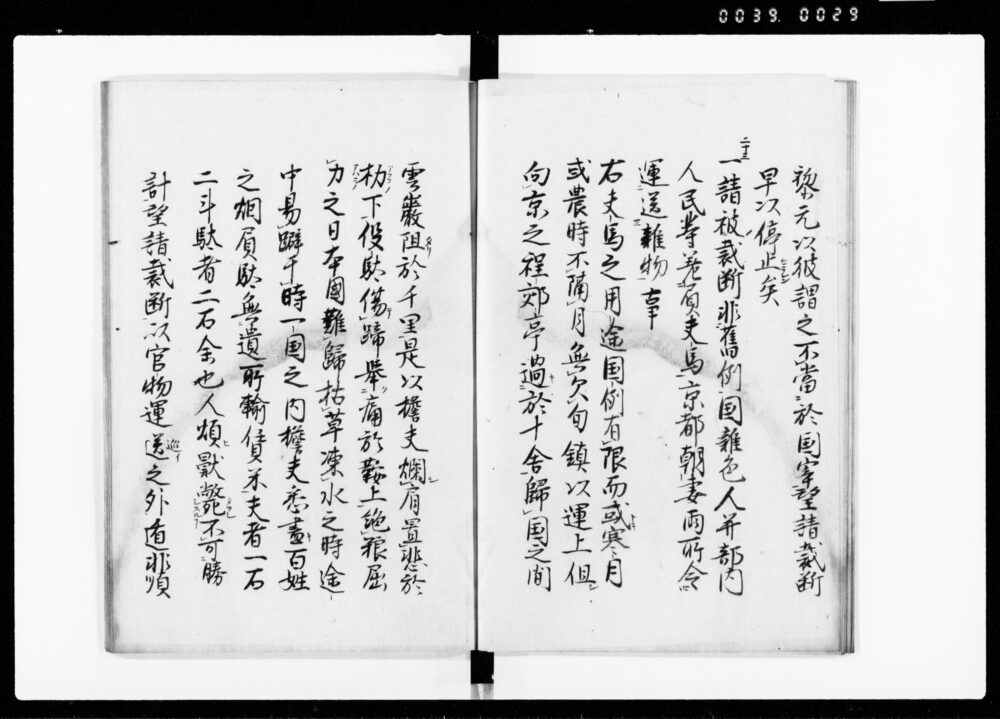 0039.0029
黎元以彼謂之不當於国宰望請裁断
早以停止矣
一請被裁断非舊例国雜色人并部内
人民等差負夫馬京都朝妻両所令
運送雜物事
右夫馬之用途国例有限而或寒月
或農時不隔月無欠旬鎮以運上但
向京之程郊亭過於十舎歸国之間
雲巖阻於千里是以擔夫爛肩置悲於
朸下役駄傷蹄舉痛於鞍上絶粮屈
力之日本國難歸枯草凍水之時途
中易躃于時一国之内擔夫悉盡百姓
之烟負駄無遺所輸償米夫者一石
二斗駄者二石余也人煩獣斃不可勝
計望請裁断以官物運送之外遁非順